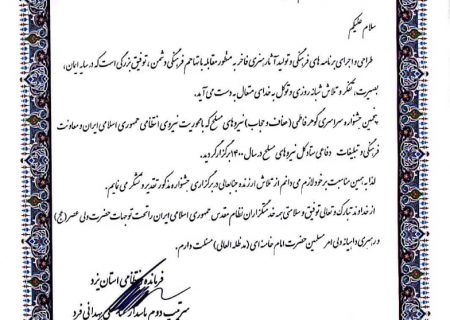 سلام علیکم
طراحی و اجرای برنامه های فرهنگی و تولید آثار هنری فاخر به منظور مقابله با تهاجم فرهنگی دشمن، توفیق بزرگی است که در سایه ایمان،
بصیرت، تفکر و تلاش شبانه روزی و توکل به خدای متعال به دست می آید.
پنجمین جشنواره سراسری گوهر فاطمی (عفاف و حجاب) نیروهای مسلح که با محوریت نیروی انتظامی جمهوری اسلامی ایران و معاونت
فرهنگی و تبلیغات دفاعی ستاد کل نیروهای مسلح در سال ۱۴۰۰ برگزار گردید.
لذا به همین مناسبت بر خود لازم می دانم از تلاش ارزنده جنابعالی در برگزاری جشنواره مذکور تقدیر و تشکر می نمایم.
از خداوند تبارک و تعالی توفیق و سلامتی همه خدمتگزاران نظام مقدس جمهوری اسلامی ایران را تحت توجهات حضرت ولی عصر (عج)
و رهبری داهیانه ولی امر مسلمین حضرت امام خامنه ای (مدظله العالی) مسئلت دارم.
فرمانده انتظامی استان یزد
سرتیپ دوم پاسدار بهدانی فرد